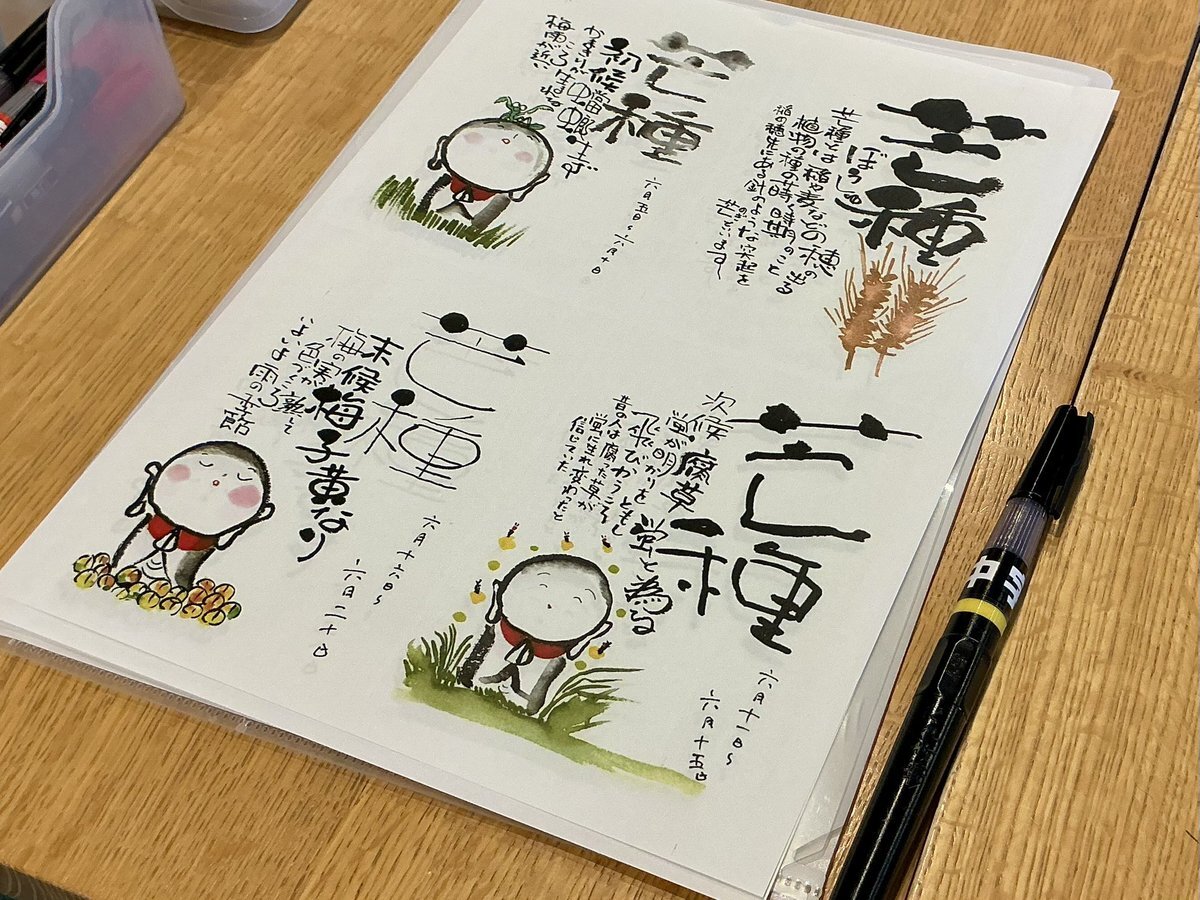 芒種
ぼうしゅ
芒種とは稲や麦などの穂の出る
植物の種の蒔く時期のこと
稲の穂先にある針のような突起を
のぎ
芒といいます〜
芒種
初候 蟷螂生ず
かまきりが生まれる
ころ
梅雨が近い
六月五日〜六月十日
芒種
次候 腐草 蛍と為る
蛍が明かりをともし
飛びかうころ
昔の人は腐った草が
蛍に生れ変わったと
信じていた
六月十一日〜
〜六月十五日
芒種
末候 梅子黄なり
梅の実が熟して
色づくころ
いよいよ雨の季節
六月十六日〜
〜六月二十日